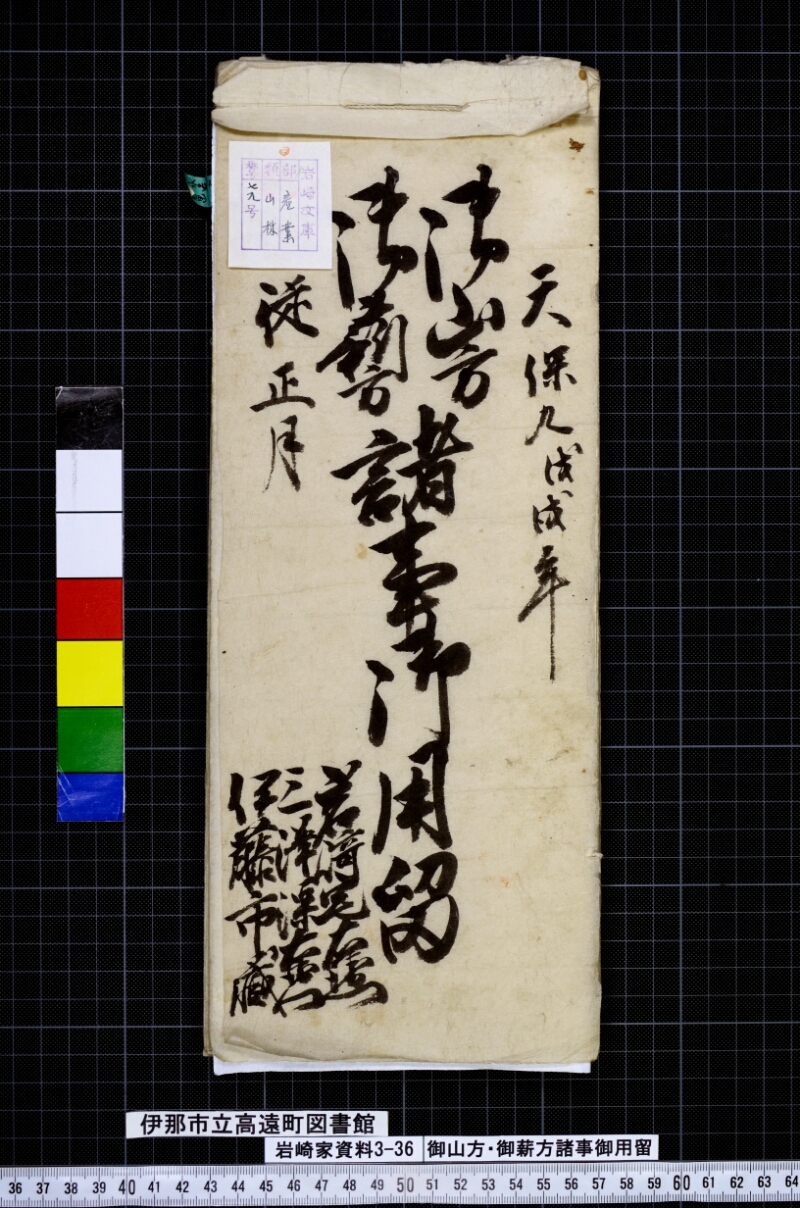 天保九戊戌年
御山方
御薪方
諸事御用留
従正月
岩崎
三澤
伊藤市蔵
岩崎文庫
部 産業
類 山林
號 七九号
伊那市立高遠町図書館
岩崎家資料3-36
御山方・御薪方諸事御用留
36 37 38 39 40 41 42 43 44 45 46 47 48 49 50 51 52 53 54 55 56 57 58 59 60 61 62 63 64